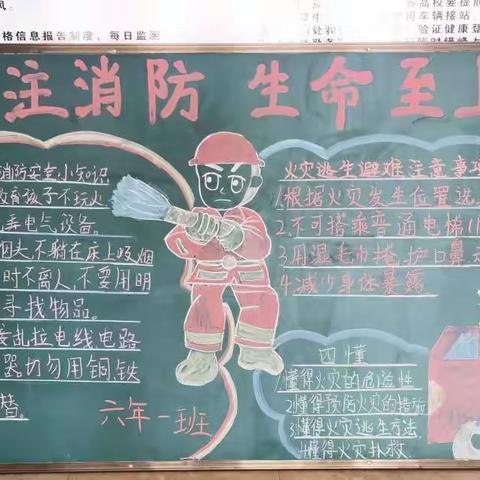 风。
格信息报告制度，每日监测
高校要提前
用车辆接站
验证健康登
注消防 生命至上
消防安全小知识
教育孩子不玩火
弄电气设备。
烟头,不躺在床上吸烟
时不离人,不要用明
寻找物品。
接乱拉电线电路
器切勿用铜,铁
替。
六年一班
火灾逃生避难注意事项
1.根据火灾发生位置选
2.不可搭乘普通电梯
3.用湿毛巾掩护口鼻
4.减少身体暴露
四懂
1.懂得火灾的危险性
2.懂得预防火灾的措施
3.懂得火灾逃生方法
4.懂得火灾扑救.